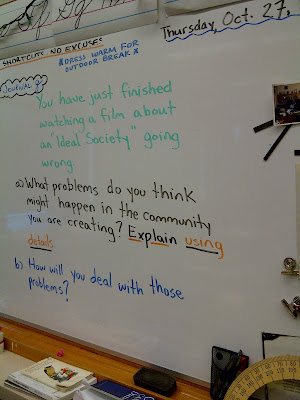 Thursday, Oct. 27,
SHORTCUTS NO EXCUSES
*DRESS WARM FOR
OUTDOOR BREAK*
JOURNAL
You have just finished
watching a film about
an "Ideal Society" going
wrong.
a) What problems do you think
might happen in the community
you are creating? Explain using
details
b) How will you deal with those
problems?